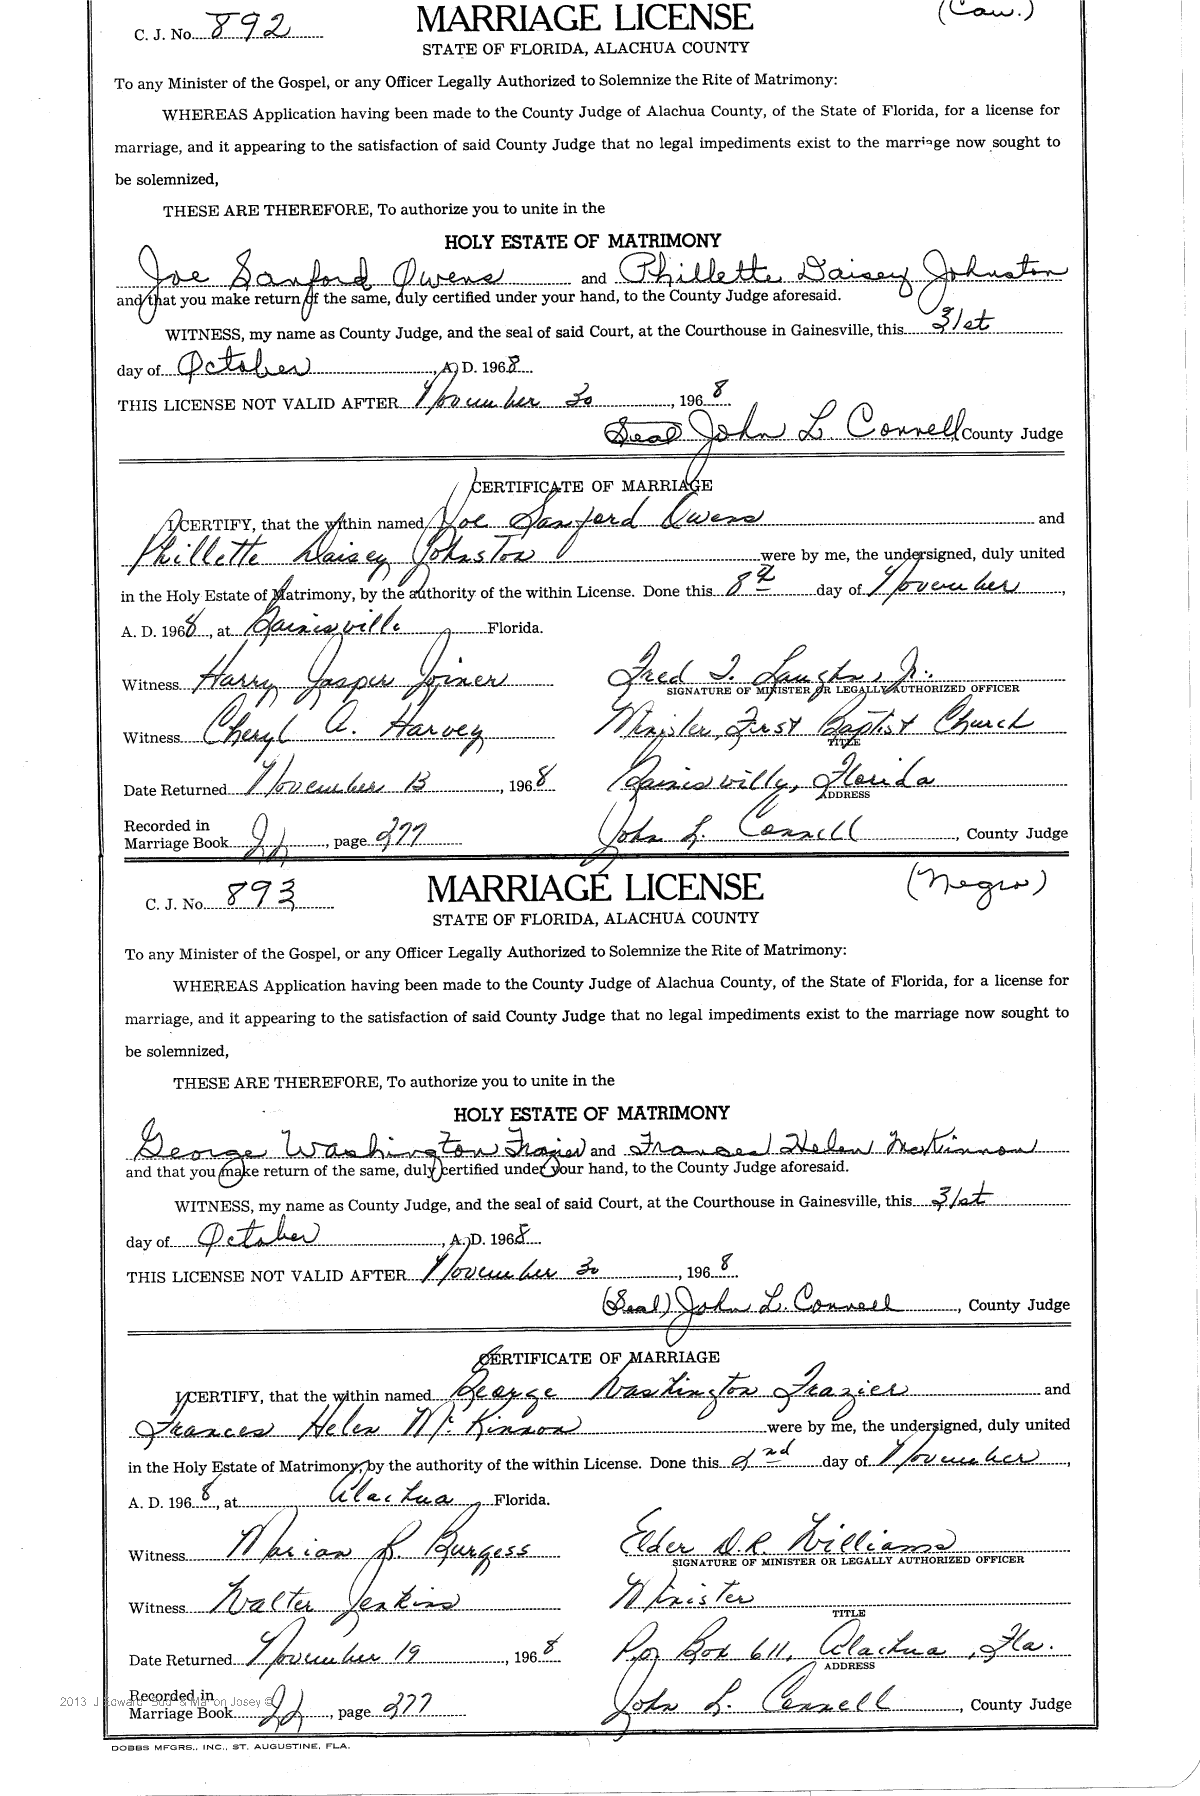 C. J. No. 892 MARRIAGE LICENSE (Cau.)
STATE OF FLORIDA, ALACHUA COUNTY
To any Minister of the Gospel, or any Officer Legally Authorized to Solemnize the Rite of Matrimony:
WHEREAS Application having been made to the County Judge of Alachua County, of the State of Florida, for a license for
marriage, and it appearing to the satisfaction of said County Judge that no legal impediments exist to the marriage now sought to
be solemnized,
THESE ARE THEREFORE, To authorize you to unite in the
HOLY ESTATE OF MATRIMONY
Joe Sanford Owens and Phillette Daisey Johnston
and that you make return of the same, duly certified under your hand, to the County Judge aforesaid.
WITNESS, my name as County Judge, and the seal of said Court, at the Courthouse in Gainesville, this 31st
day of October, A. D. 1968
THIS LICENSE NOT VALID AFTER November 30, 1968
(Seal) John L. Connell County Judge
CERTIFICATE OF MARRIAGE
I CERTIFY, that the within named Joe Sanford Owens and
Phillette Daisey Johnston were by me, the undersigned, duly united
in the Holy Estate of Matrimony, by the authority of the within License. Done this 8th day of November,
A. D. 1968, at Gainesville Florida.
Witness Harry Jasper Joiner Fred T. Laughon, Jr.
SIGNATURE OF MINISTER OR LEGALLY AUTHORIZED OFFICER
Witness Cheryl A. Harvey Minister, First Baptist Church
TITLE
Date Returned November 13, 1968 Gainesville, Florida
ADDRESS
Recorded in
Marriage Book 22, page 277 John L. Connell, County Judge
C. J. No. 893 MARRIAGE LICENSE (Negro)
STATE OF FLORIDA, ALACHUA COUNTY
To any Minister of the Gospel, or any Officer Legally Authorized to Solemnize the Rite of Matrimony:
WHEREAS Application having been made to the County Judge of Alachua County, of the State of Florida, for a license for
marriage, and it appearing to the satisfaction of said County Judge that no legal impediments exist to the marriage now sought to
be solemnized,
THESE ARE THEREFORE, To authorize you to unite in the
HOLY ESTATE OF MATRIMONY
George Washington Frazier and Frances Helen McKinnon
and that you make return of the same, duly certified under your hand, to the County Judge aforesaid.
WITNESS, my name as County Judge, and the seal of said Court, at the Courthouse in Gainesville, this 31st
day of October, A. D. 1968
THIS LICENSE NOT VALID AFTER November 30, 1968
(Seal) John L. Connell, County Judge
CERTIFICATE OF MARRIAGE
I CERTIFY, that the within named George Washington Frazier and
Frances Helen McKinnon were by me, the undersigned, duly united
in the Holy Estate of Matrimony, by the authority of the within License. Done this 2nd day of November,
A. D. 1968, at Alachua, Florida.
Witness Marian L. Burgess Elder D.R. Williams
SIGNATURE OF MINISTER OR LEGALLY AUTHORIZED OFFICER
Witness Walter Jenkins Minister
TITLE
Date Returned November 19, 1968 P.O. Box 611, Alachua, Fla.
ADDRESS
Recorded in
Marriage Book 22, page 277 John L. Connell, County Judge
DOBBS MFGRS., INC., ST. AUGUSTINE, FLA.